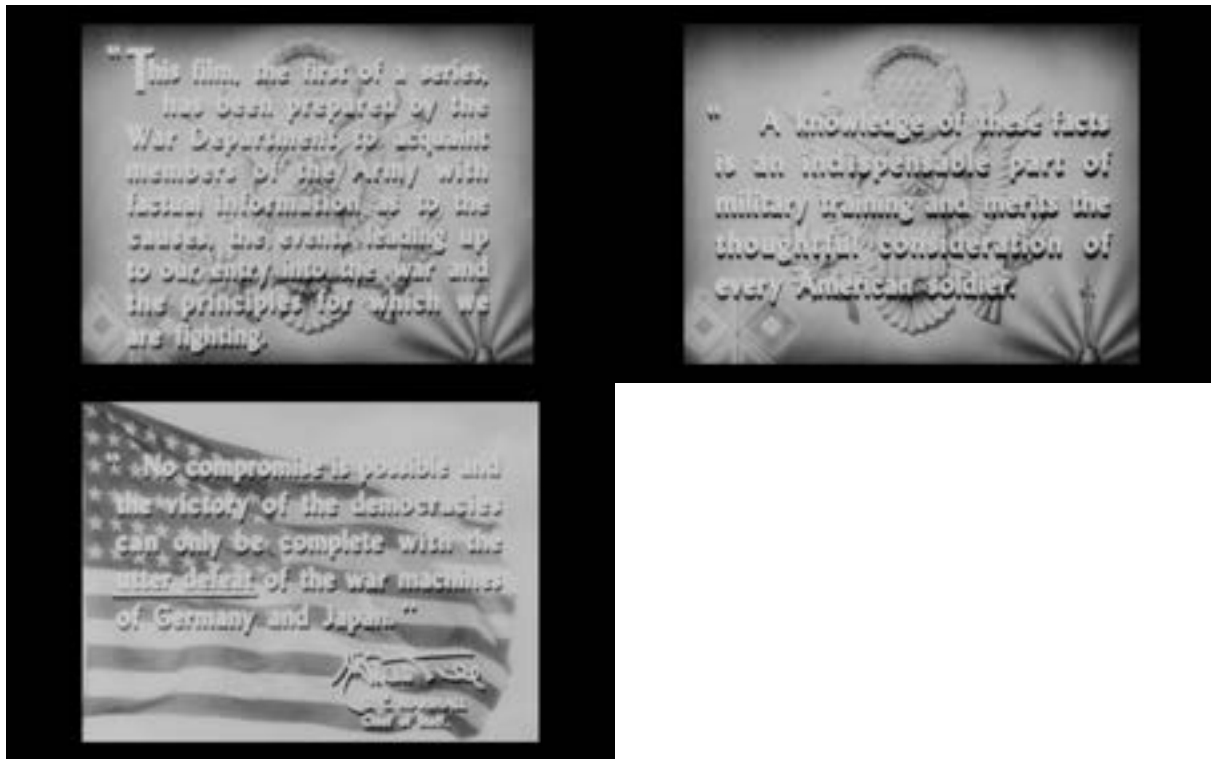 "This film, the first of a series,
has been prepared by the
War Department to acquaint
members of the Army with
factual information as to the
causes, the events leading up
to our entry into the war and
the principles for which we
are fighting.
" A knowledge of these facts
is an indispensable part of
military training and merits the
thoughtful consideration of
every American soldier.
" No compromise is possible and
the victory of the democracies
can only be complete with the
utter defeat of the war machines
of Germany and Japan."
Chief of Staff.